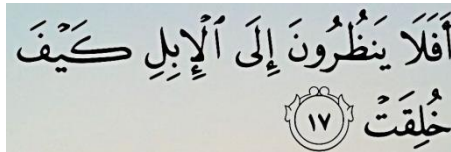 أَفَلَا يَنظُرُونَ إِلَى ٱلْإِبِلِ كَيْفَ
خُلِقَتْ ١٧